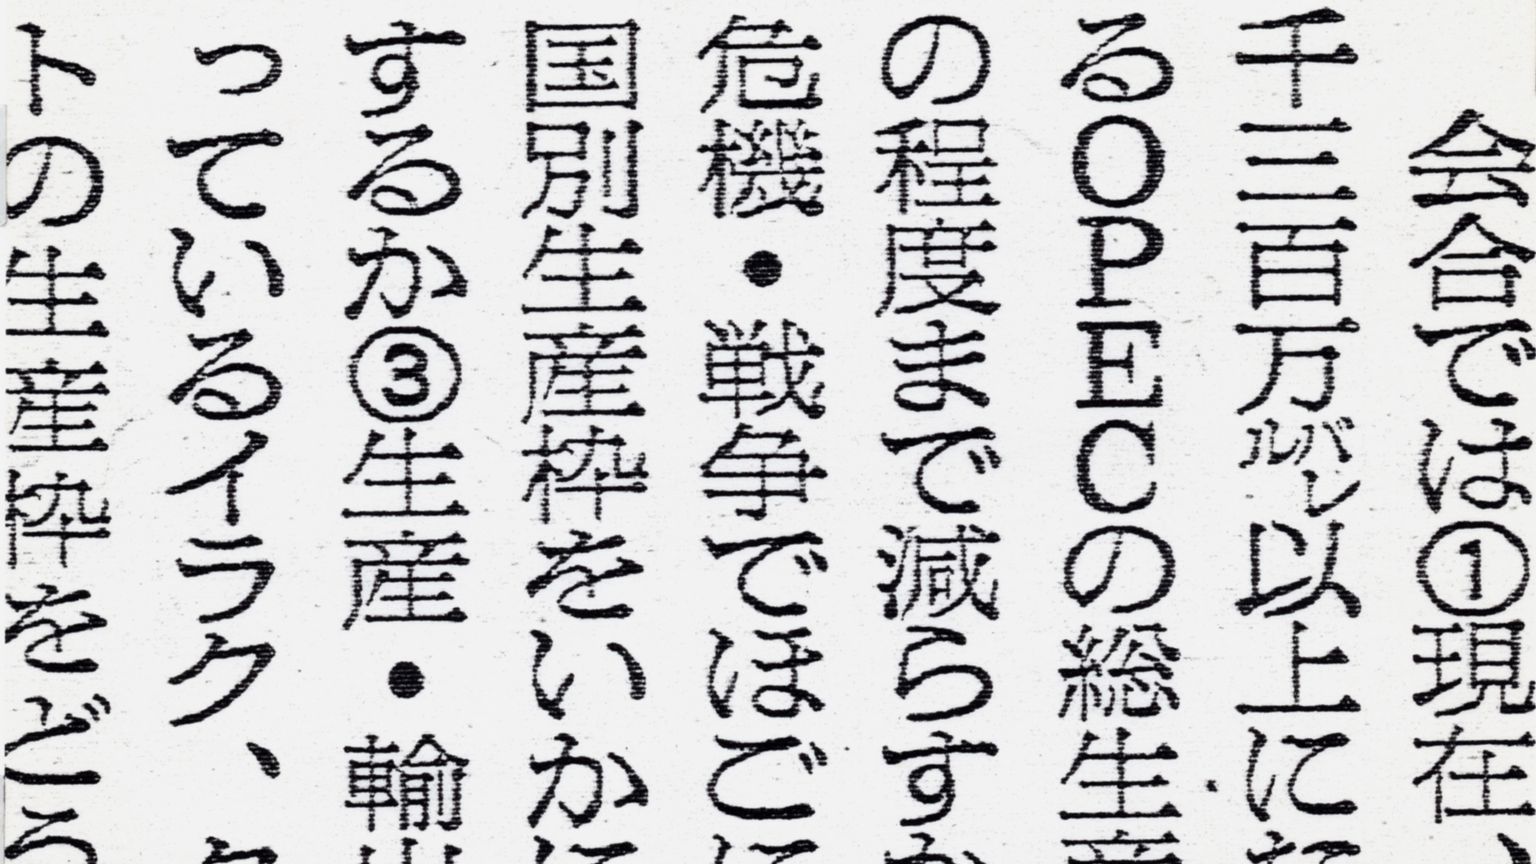 会合では①現在、
千三百万バレル以上に
るOPECの総生産
の程度まで減らすか
危機・戦争でほごに
国別生産枠をいかに
するか③生産・輸出
っているイラク、ク
トの生産枠をどう